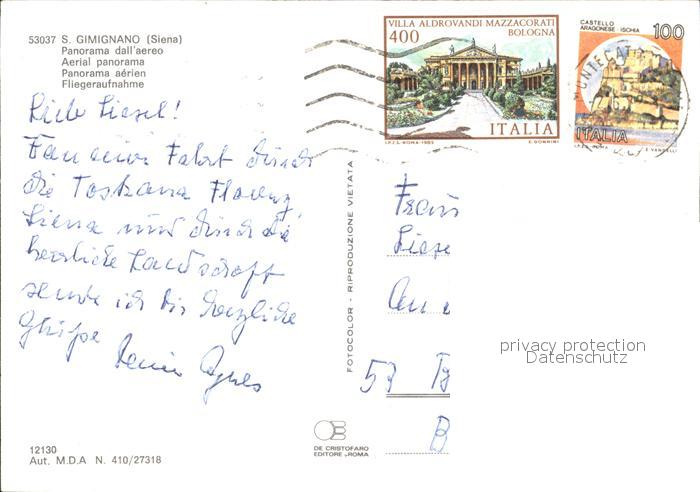 53037 S. GIMIGNANO (Siena)
Panorama dall'aereo
Aerial panorama
Panorama aérien
Fliegeraufnahme
VILLA ALDROVANDI MAZZACORATI
BOLOGNA
400
ITALIA
I.P.Z.S.-ROMA-1983
E. DONNINI
CASTELLO
ARAGONESE - ISCHIA
100
ITALIA
E. VANGELLI
Liebe Liesel!
Fahrt durch
die Toskana Florenz,
Siena und durch die
herrliche Landschaft
sende ich dir herzliche
Grüße
Agnes
FOTOCOLOR - RIPRODUZIONE VIETATA
Frau
Liese
An
53
B
privacy protection
Datenschutz
DE CRISTOFARO
EDITORE - ROMA
12130
Aut. M.D.A N. 410/27318